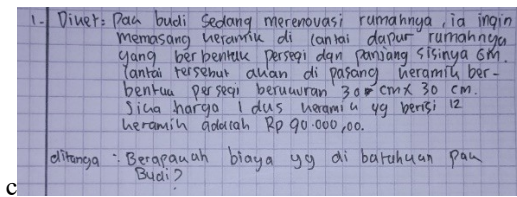 1. Diket : Pak budi Sedang merenovasi rumahnya, ia ingin
memasang keramik di lantai dapur rumahnya
yang berbentuk persegi dgn panjang sisinya 6m.
lantai tersebut akan di pasang keramik ber-
bentuk persegi berukuran 30 cm x 30 cm.
Jika harga 1 dus keramik yg berisi 12
keramik adalah Rp 90.000,00.
ditanya : Berapakah biaya yg di butuhkan pak
Budi?
c